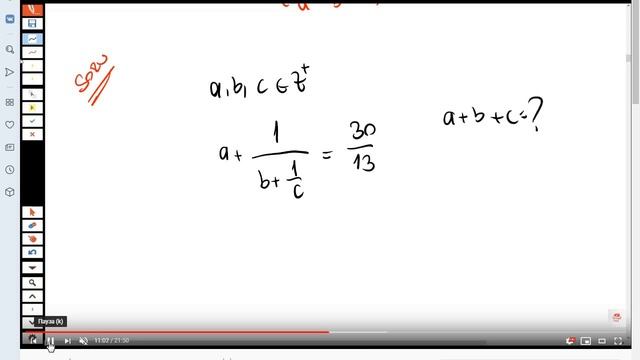 Soru
a, b, c ∈ Z⁺
a + 1/(b + 1/c) = 30/13
a + b + c = ?
Пауза (k)
11:02 / 21:50